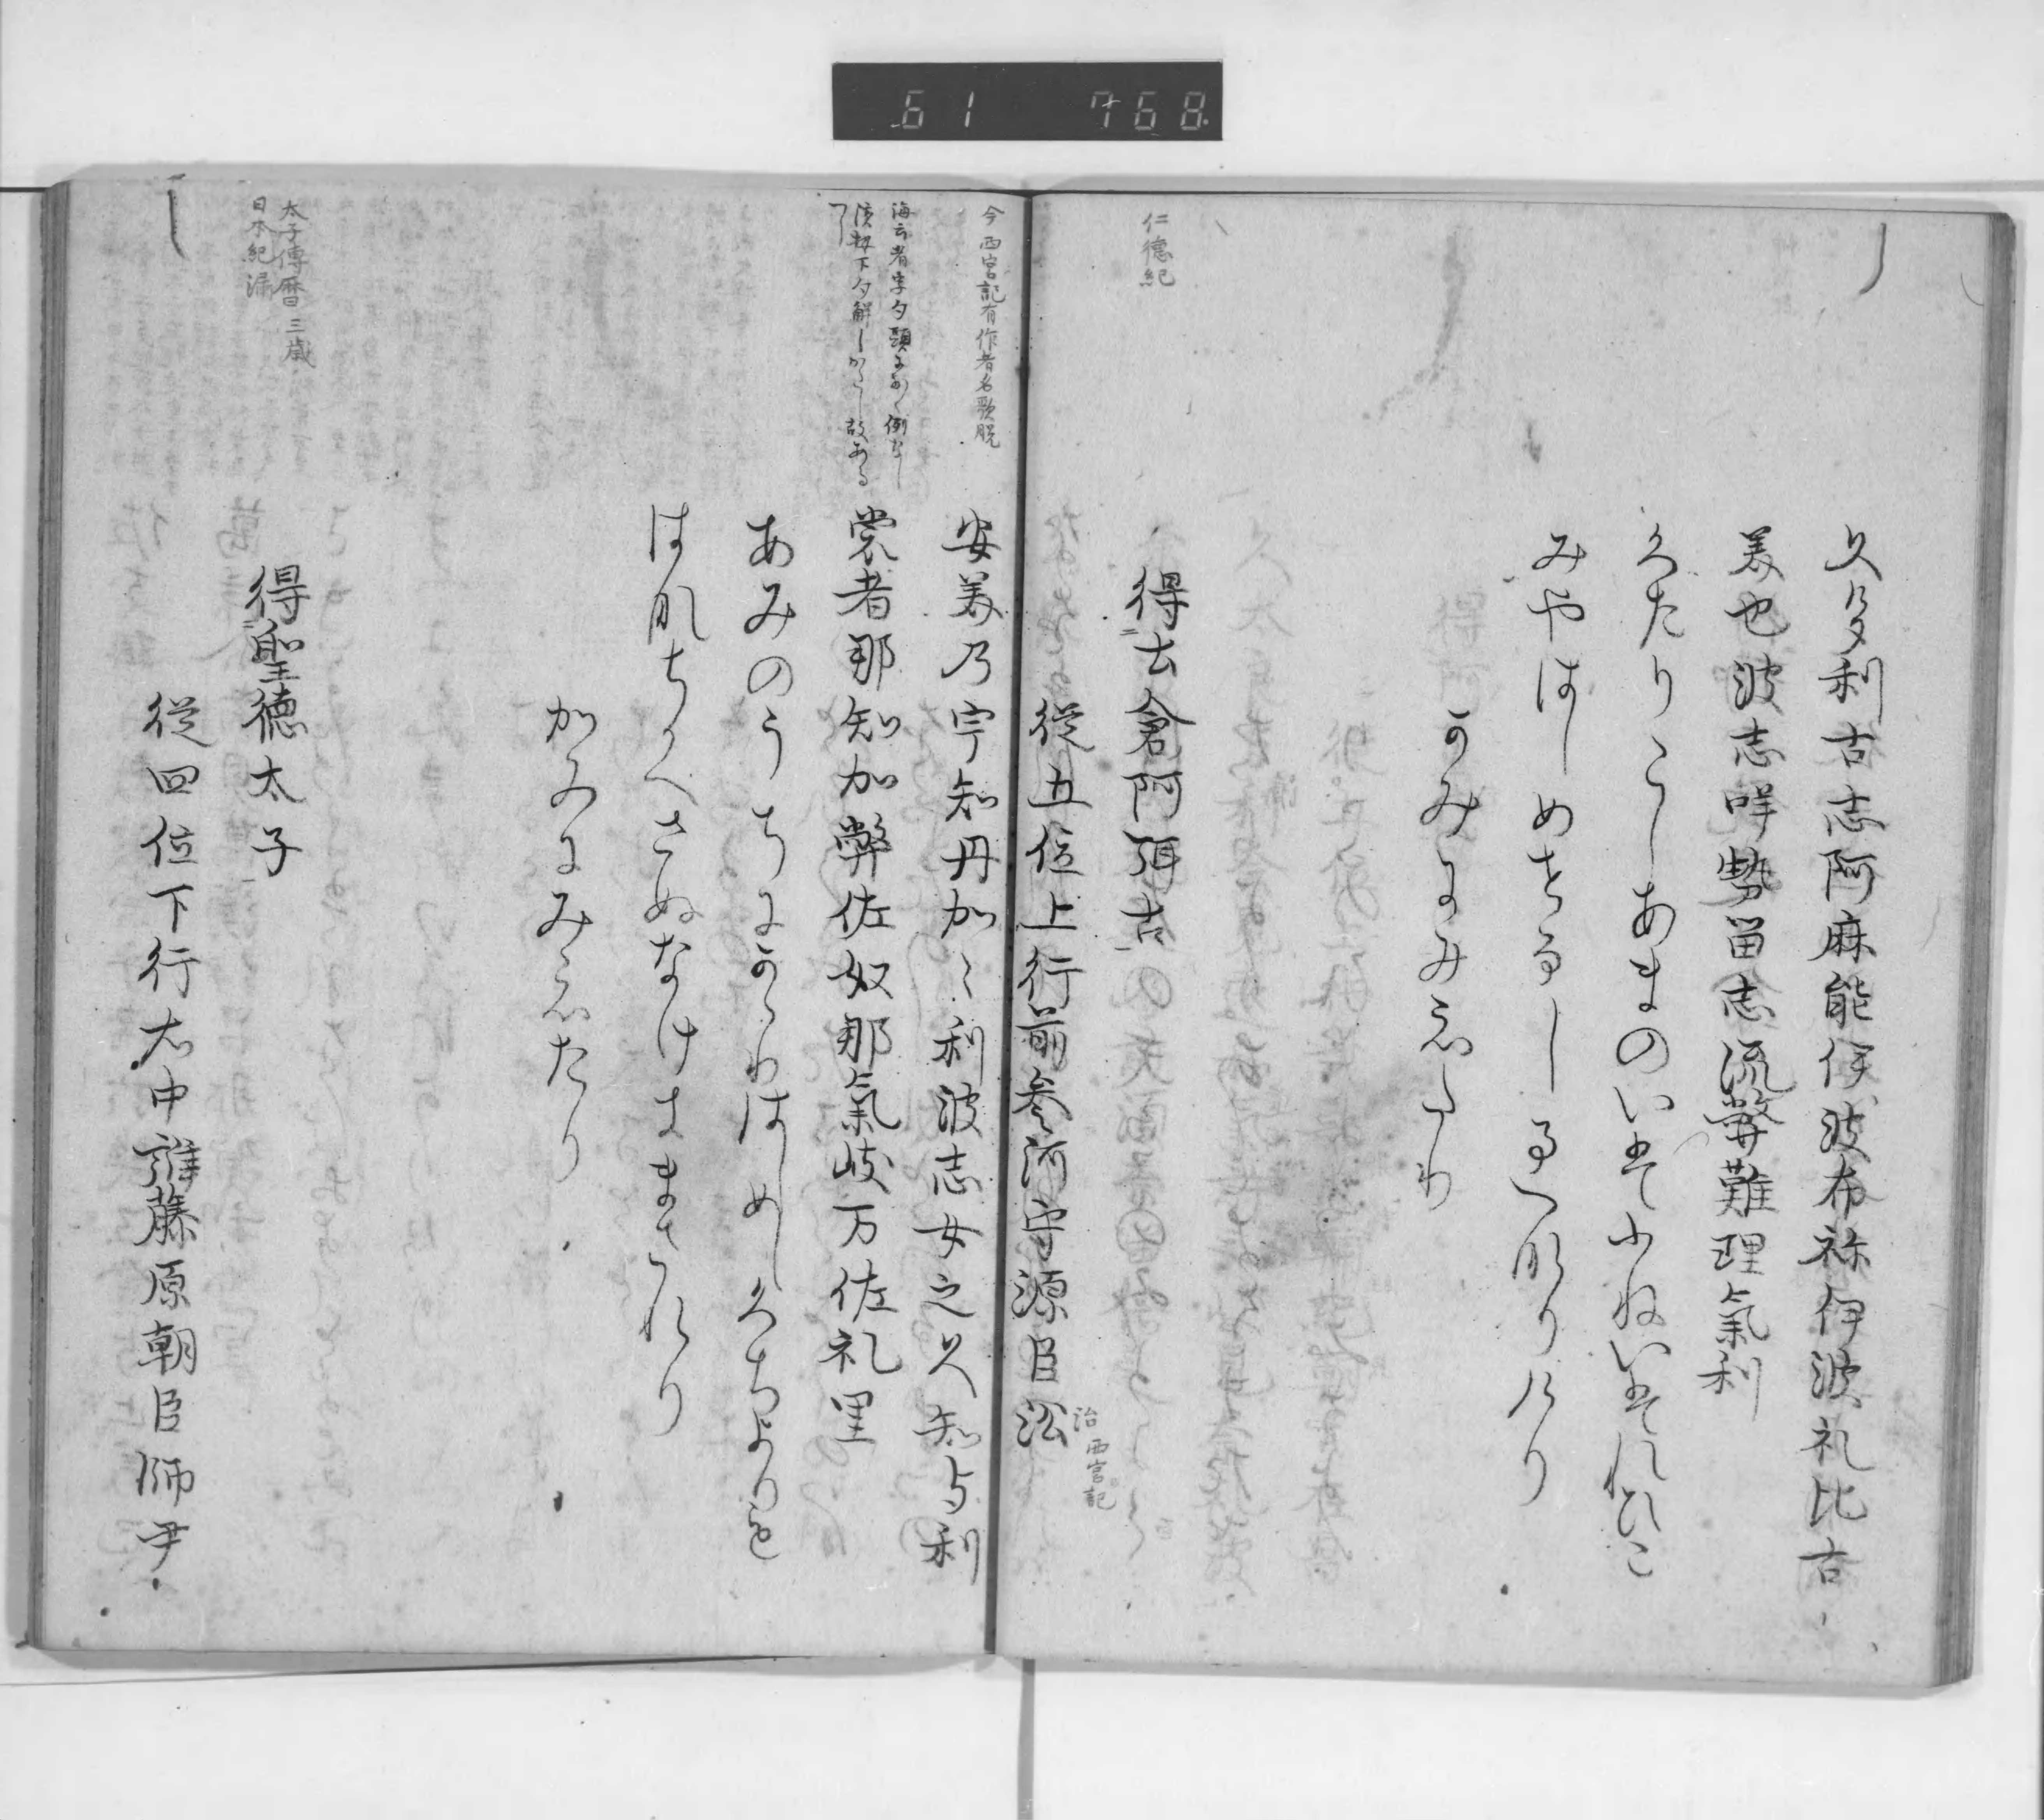 61 768
仁徳紀
久夕多利古志阿麻能伊波布祢伊波礼比古
美也波志咩勢留志流弊難理氣利
くたりこしあまのいはふねいはれひこ
みやはしめせるしるへなりけり
かみにみえたり
得古倉阿弭古
従五位上行前参河守源臣浴
治西宮記
今西宮記有作者名歌脱
安美乃宇知丹加〻利波志女之久知与利
海云者字夕頭
裳者那知加弊佐奴那氣岐万佐礼里
あみのうちにかゝりはしめしくちよりも
は那ちかへさぬなけきまされり
かみにみえたり
太子傳暦三歳
日本紀漏
得聖徳太子
従四位下行右中辨藤原朝臣師尹